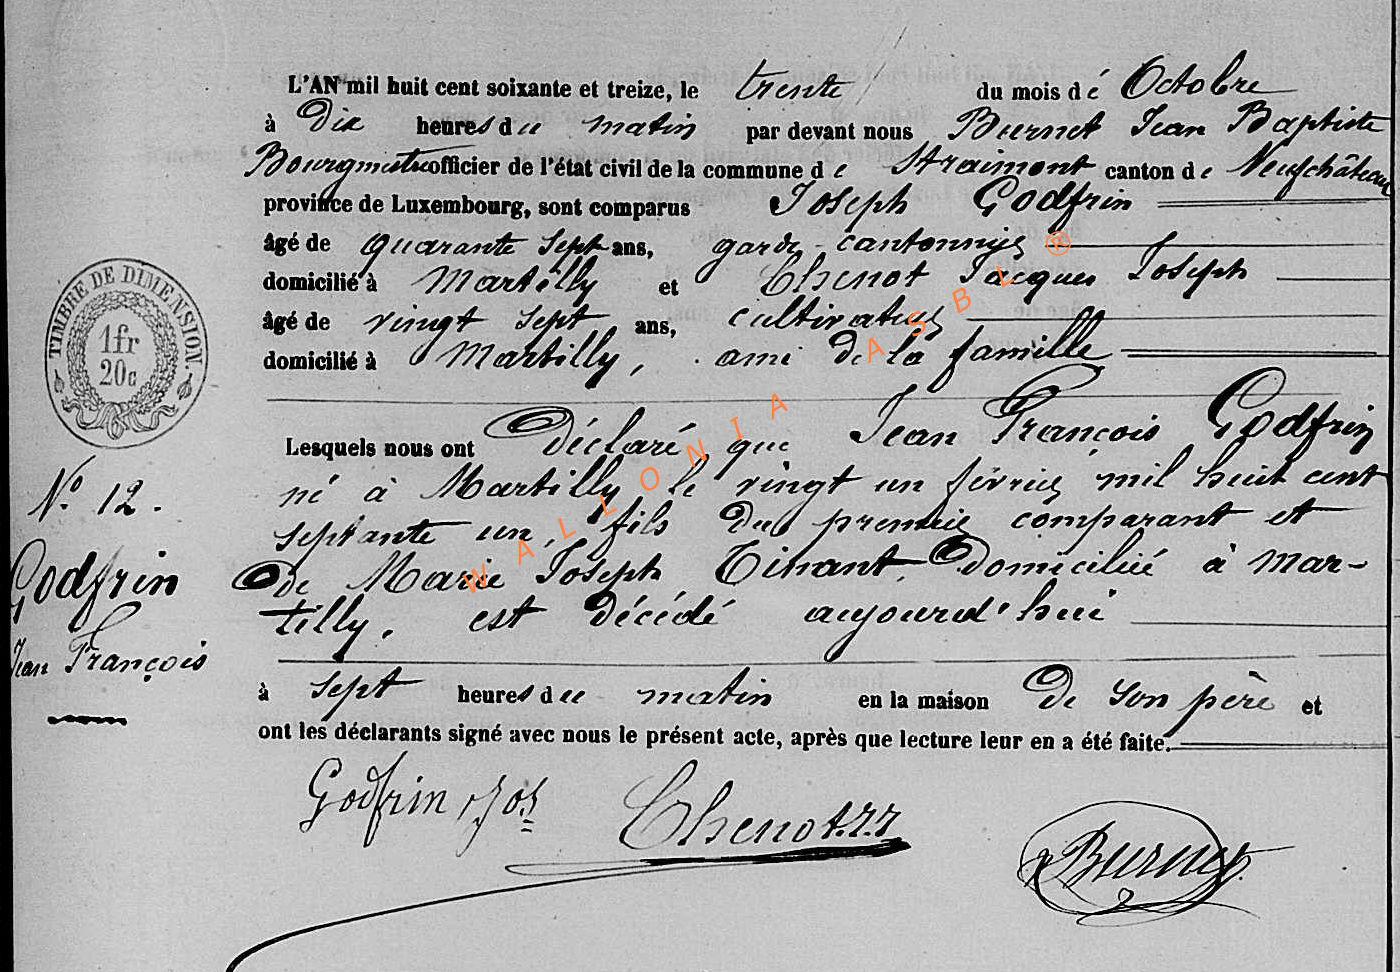 L'AN mil huit cent soixante et treize, le trente du mois de Octobre
à Dix heures du matin par devant nous Burnet Jean Baptiste
Bourgmestre officier de l'état civil de la commune de Straimont canton de Neufchâteau
province de Luxembourg, sont comparus Joseph Godfrin
âgé de quarante sept ans, garde-cantonnier
domicilié à Martilly et Thenot Jacques Joseph
âgé de vingt sept ans, cultivateur
domicilié à Martilly, ami de la famille
Lesquels nous ont Déclaré, que Jean François Godfrin
né à Martilly le vingt un février mil huit cent
septante un, fils du premier comparant et
de Marie Joseph Tinant, Domicilié à Mar-
tilly, est décédé aujourd'hui
à sept heures du matin en la maison de son père et
ont les déclarants signé avec nous le présent acte, après que lecture leur en a été faite.
Godfrin Jos
Thenot J.J
Burnet
TIMBRE DE DIMENSION.
1fr
20c
N° 12.
Godfrin
Jean François
WALLONIA ASBL ®